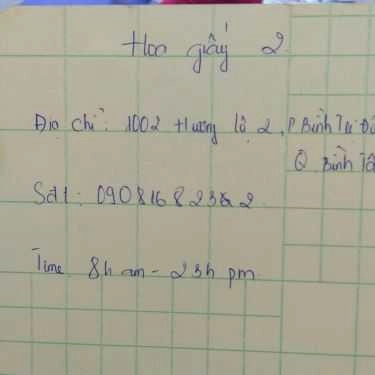 Hoa giấy 2
Địa chỉ: 1002 Hương lộ 2, P Bình Trị Đô
Q Bình Tâ
Sđt: 0908168232
Time 8h am - 23h pm